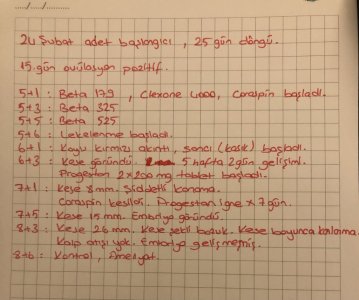 ..../..../....
24 Şubat adet başlangıcı, 25 gün döngü.
15. gün ovülasyon pozitif.
5+1 : Beta 179, Clexane 4000, Coraspin başladı.
5+3 : Beta 325
5+5 : Beta 525
5+6 : Lekelenme başladı.
6+1 : Koyu kırmızı akıntı, sancı (kasık) başladı.
6+3 : Kese göründü. 5 hafta 2 gün gelişimi.
Progestan 2x200 mg tablet başladı.
7+1 : Kese 8mm. Şiddetli kanama.
Coraspin kesildi. Progestan iğne x 7 gün.
7+5 : Kese 15 mm. Embriyo göründü.
8+3 : Kese 26 mm. Kese şekli bozuk. Kese boyunca kanama.
Kalp atışı yok. Embriyo gelişmemiş.
8+6 : Kontrol, Ameliyat.